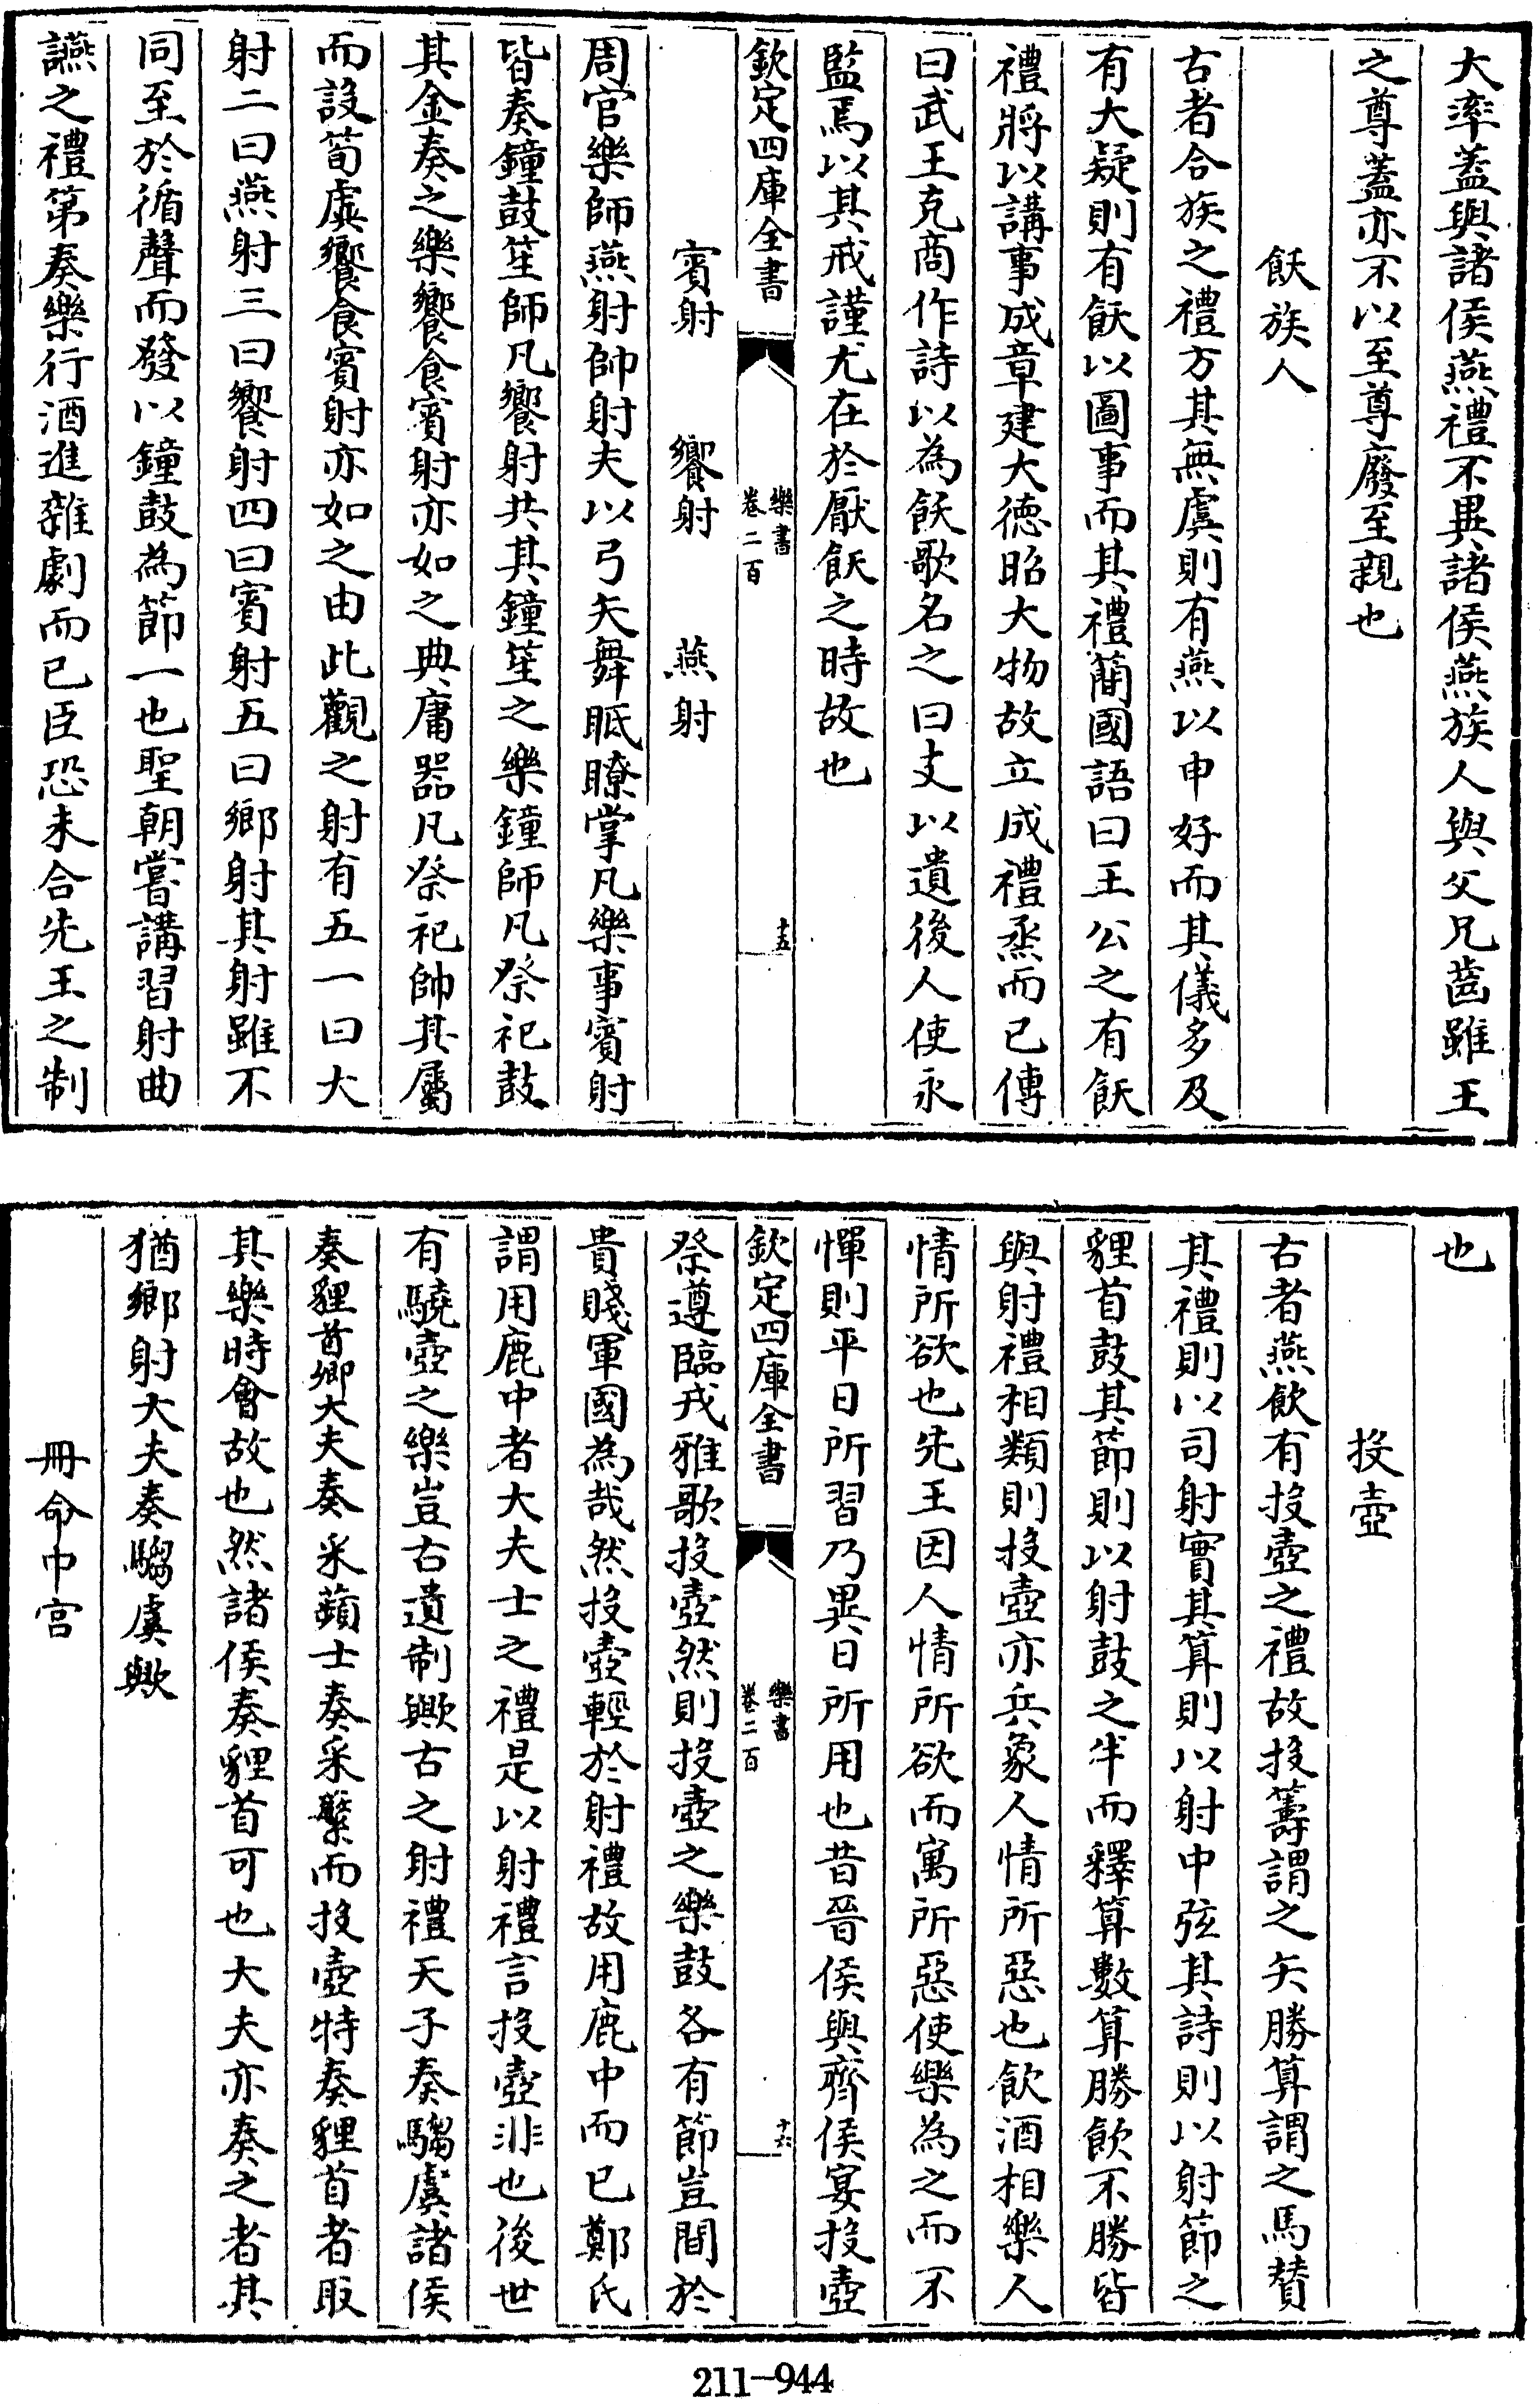 大率蓋與諸侯燕禮不異諸侯燕族人與父兄齒雖王
之尊蓋亦不以至尊廢至親也
飫族人
古者合族之禮方其無虞則有燕以申好而其儀多及
有大疑則有飫以圖事而其禮簡國語曰王公之有飫
禮將以講事成章建大徳昭大物故立成禮烝而已傳
曰武王克商作詩以為飫歌名之曰支以遺後人使永
監焉以其戒謹尤在於厭飫之時故也
欽定四庫全書
樂書
卷二百
十五
賓射 饗射 燕射
周官樂師燕射帥射夫以弓矢舞眡瞭掌凡樂事賓射
皆奏鐘鼓笙師凡饗射共其鐘笙之樂鐘師凡祭祀鼓
其金奏之樂饗食賓射亦如之典庸器凡祭祀帥其屬
而設筍虡饗食賓射亦如之由此觀之射有五一曰大
射二曰燕射三曰饗射四曰賓射五曰鄉射其射雖不
同至於循聲而發以鐘鼓為節一也聖朝嘗講習射曲
讌之禮第奏樂行酒進雜劇而已臣恐未合先王之制
也
投壺
古者燕飲有投壺之禮故投籌謂之矢勝算謂之馬贊
其禮則以司射實其算則以射中弦其詩則以射節之
貍首鼓其節則以射鼓之半而釋算數算勝飲不勝皆
與射禮相類則投壺亦兵象人情所惡也飲酒相樂人
情所欲也先王因人情所欲而寓所惡使樂為之而不
憚則平日所習乃異日所用也昔晉侯與齊侯宴投壺
欽定四庫全書
樂書
卷二百
十六
祭遵臨戎雅歌投壺然則投壺之樂鼓各有節豈間於
貴賤軍國為哉然投壺輕於射禮故用鹿中而已鄭氏
謂用鹿中者大夫士之禮是以射禮言投壺非也後世
有驍壺之樂豈古遺制歟古之射禮天子奏騶虞諸侯
奏貍首卿大夫奏采蘋士奏采蘩而投壺特奏貍首者取
其樂時會故也然諸侯奏貍首可也大夫亦奏之者其
猶鄉射大夫奏騶虞歟
冊命巾宮
211-944